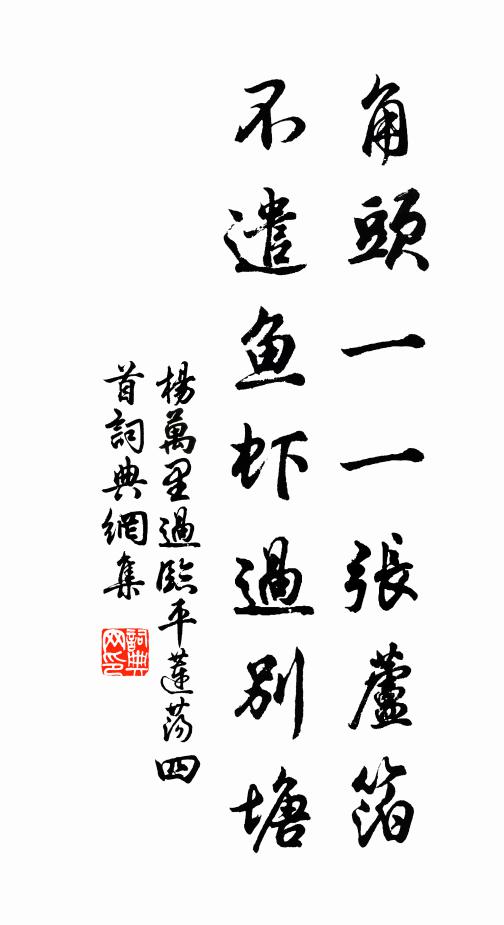 角頭一一張蘆箔
不遣鱼虾過別塘
楊萬里過臨平蓮蕩四
首詞典網集
詞典
网印